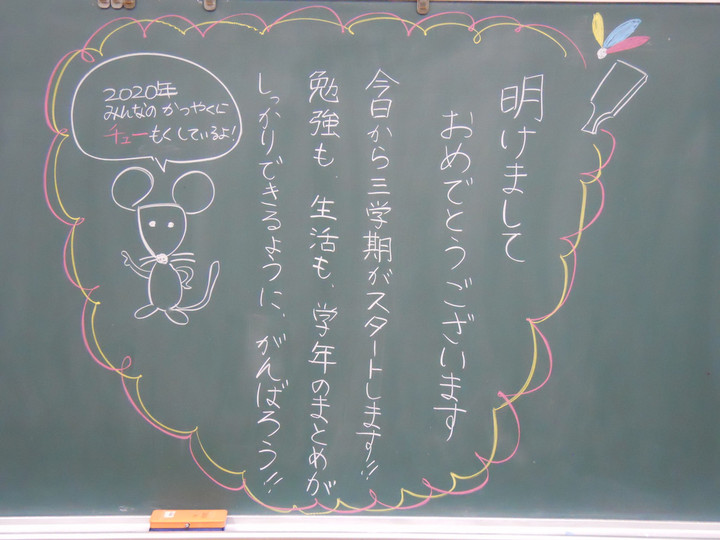 明けまして
おめでとうございます
今日から三学期がスタートします!!
勉強も、生活も、学年のまとめが
しっかりできるように、がんばろう!!
2020年
みんなの かつやくに
チューもくしているよ!